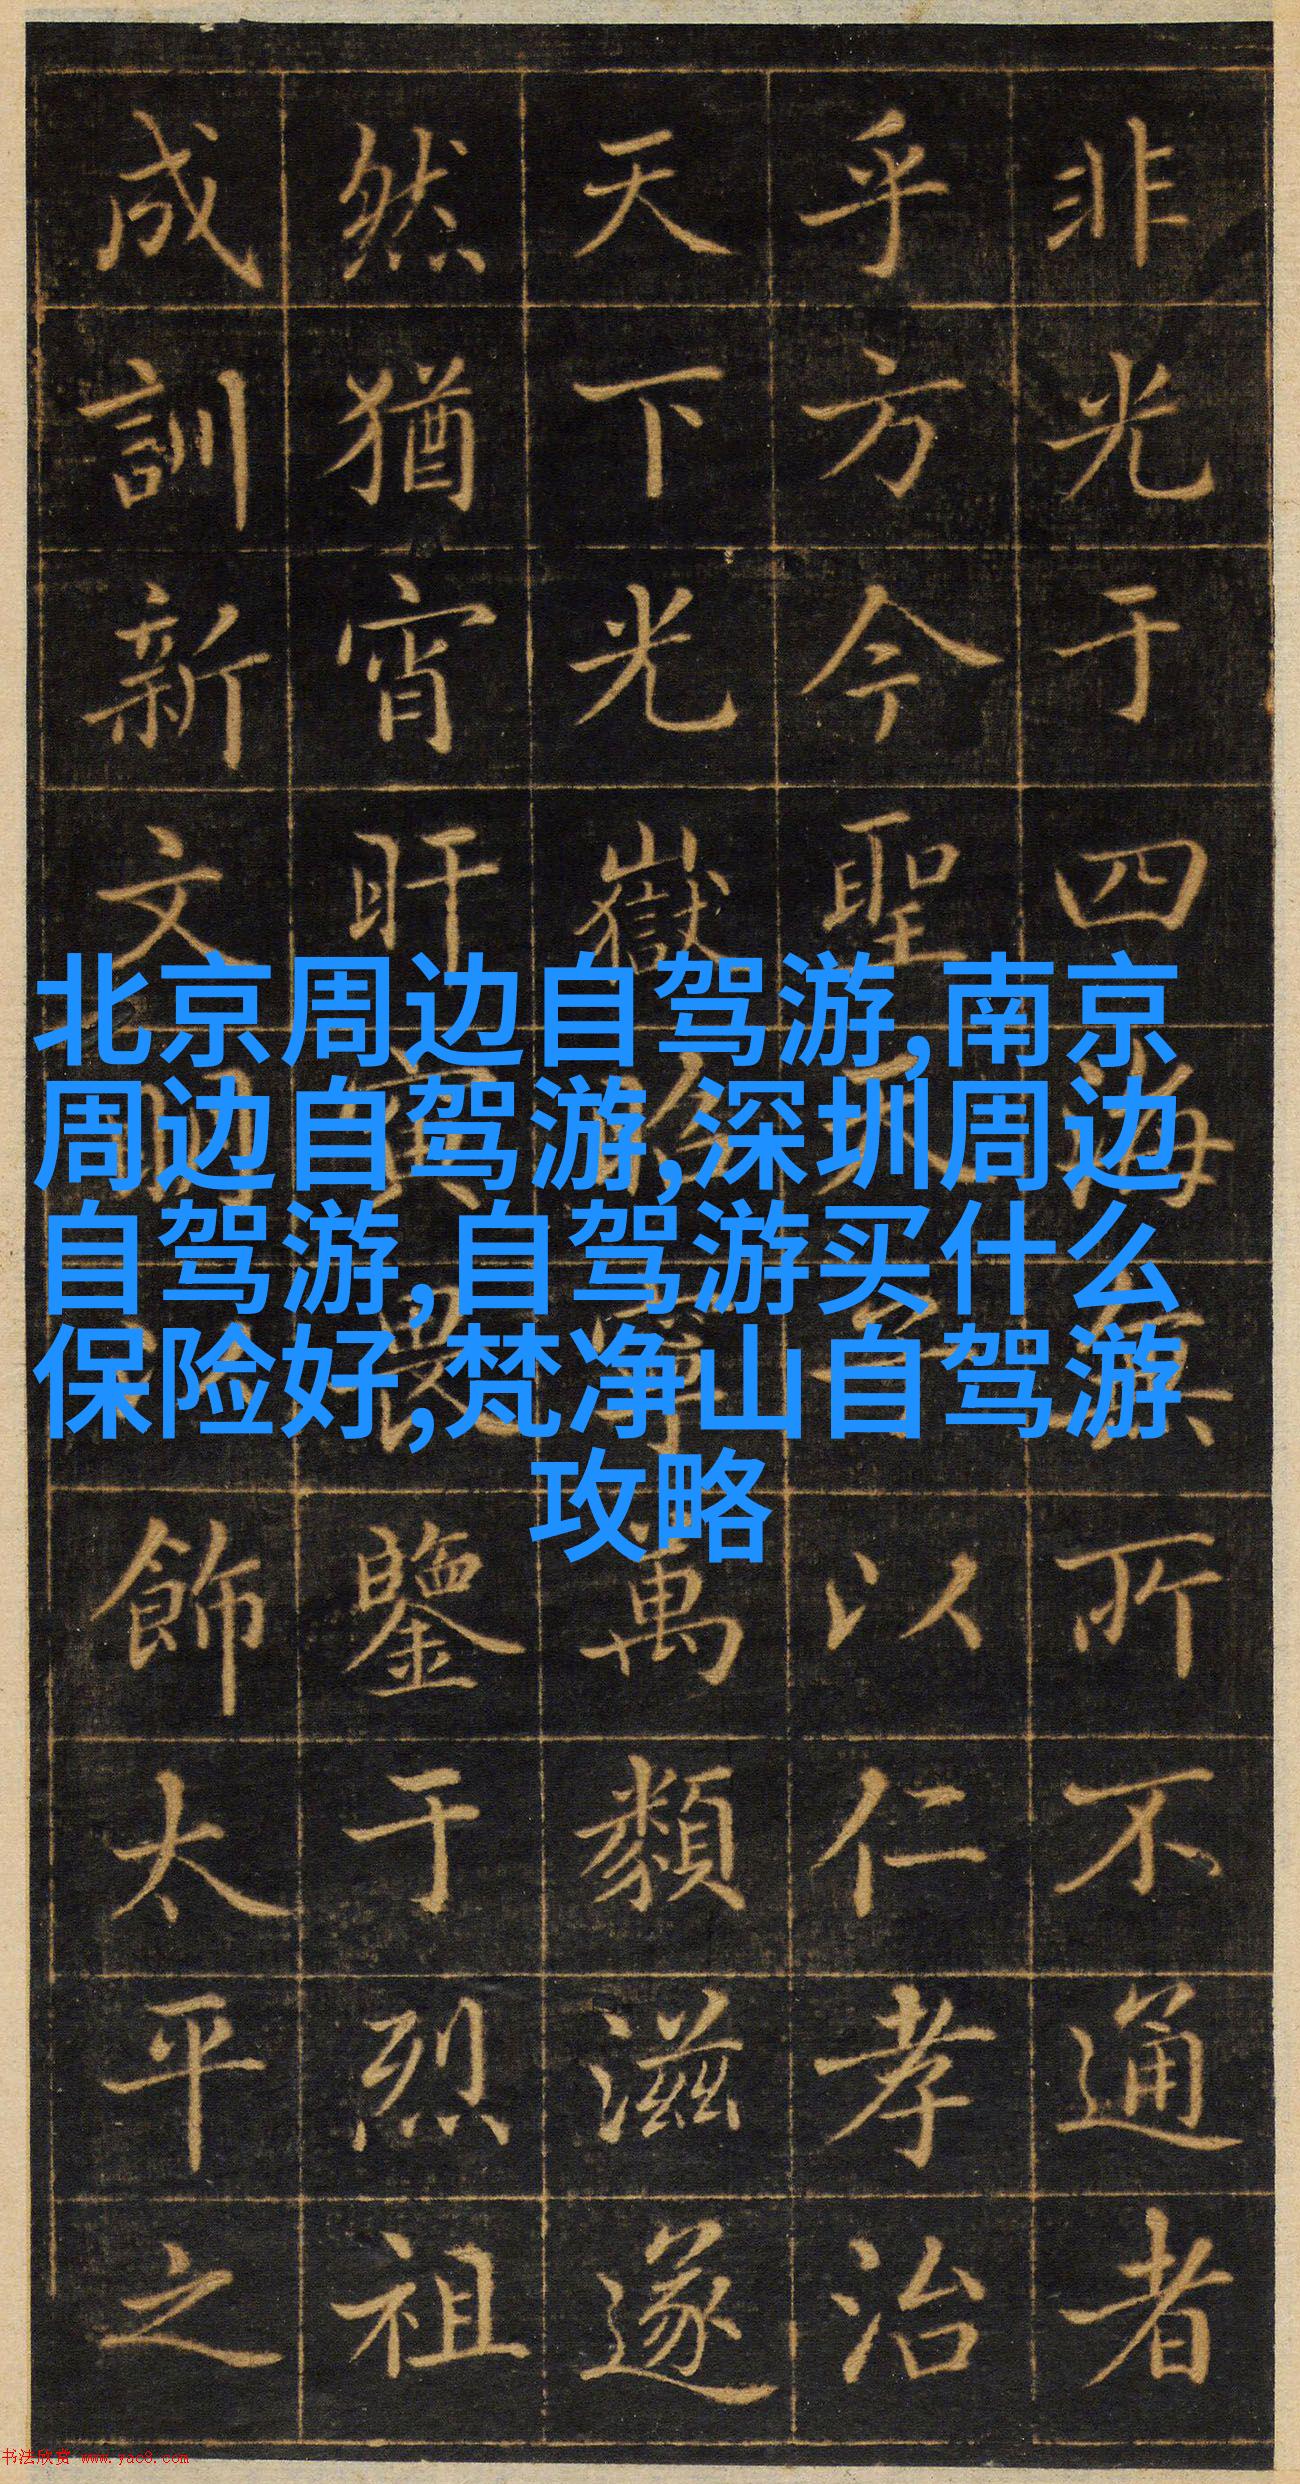 非光于四海所不通者
乎方今聖天子以仁孝治
天下光嶽寧萬類滋遂
然猶宵旰寅畏鑒于烈祖
成訓新文明飾太平之
北京周边自驾游,南京
周边自驾游,深圳周边
自驾游,自驾游买什么
保险好,梵净山自驾游
攻略
书法欣赏 www.yac8.com